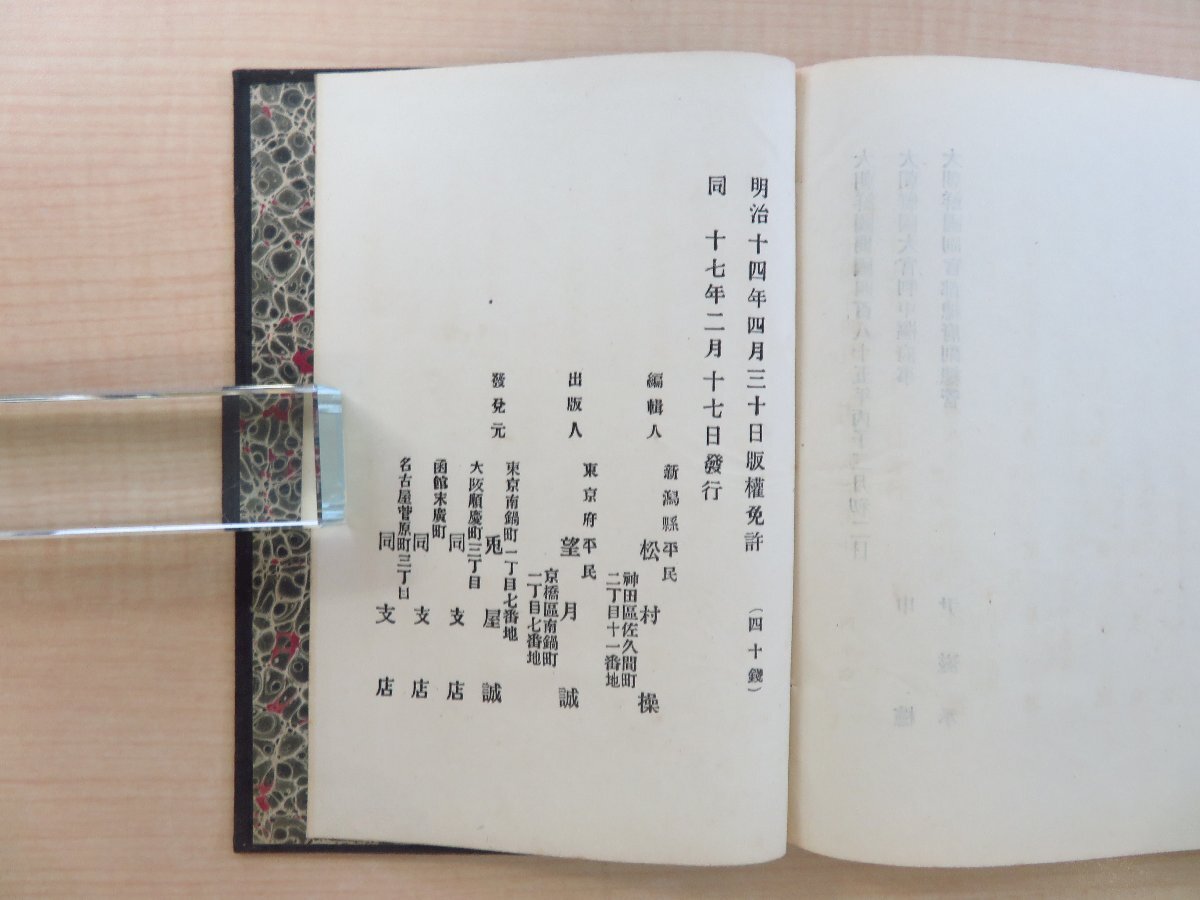 明治十四年四月三十日版權免許 (四十錢)
同 十七年二月十七日發行
編輯人
新潟縣平民
松村操
神田區佐久間町
二丁目十一番地
出版人
東京府平民
望月誠
京橋區南鍋町
一丁目七番地
發兌元
東京南鍋町一丁目七番地
兎屋誠
大阪順慶町三丁目
同支店
函館末廣町
同支店
名古屋菅原町三丁目
同支店